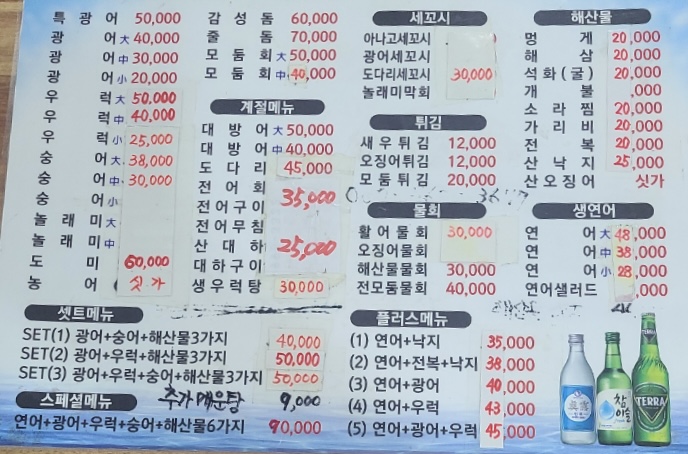 특광어 50,000
광어 大 40,000
광어 中 30,000
광어 小 20,000
우럭 大 50,000
우럭 中 40,000
우럭 小 25,000
숭어 大 38,000
숭어 中 30,000
숭어 小
놀래미 大
놀래미 中
도미 60,000
농어 싯가
감성돔 60,000
줄돔 70,000
모둠회 大 50,000
모둠회 中 40,000
계절메뉴
대방어 大 50,000
대방어 中 40,000
도다리 45,000
전어회
전어구이 35,000
전어무침
산대하 25,000
대하구이
생우럭탕 30,000
세꼬시
아나고세꼬시
광어세꼬시
도다리세꼬시 30,000
놀래미막회
튀김
새우튀김 12,000
오징어튀김 12,000
모둠튀김 20,000
물회
활어물회 30,000
오징어물회
해산물물회 30,000
전모둠물회 40,000
해산물
멍게 20,000
해삼 20,000
석화(굴) 20,000
개불 ,000
소라찜 20,000
가리비 20,000
전복 20,000
산낙지 25,000
산오징어 싯가
생연어
연어 大 48,000
연어 中 38,000
연어 小 28,000
연어샐러드 ,000
셋트메뉴
SET(1) 광어+숭어+해산물3가지 40,000
SET(2) 광어+우럭+해산물3가지 50,000
SET(3) 광어+우럭+숭어+해산물3가지 50,000
추가 매운탕 9,000
스페셜메뉴
연어+광어+우럭+숭어+해산물6가지 90,000
플러스메뉴
(1) 연어+낙지 35,000
(2) 연어+전복+낙지 38,000
(3) 연어+광어 40,000
(4) 연어+우럭 43,000
(5) 연어+광어+우럭 45,000
眞露
참이슬
TERRA